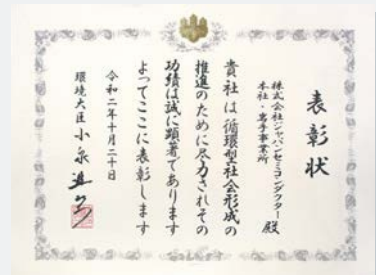 表彰状
株式会社ジャパンセミコンダクター
本社・岩手事業所
殿
貴社は循環型社会形成の
推進のために尽力されその
功績は誠に顕著であります
よってここに表彰します
令和二年十月二十日
環境大臣 小泉進次郎